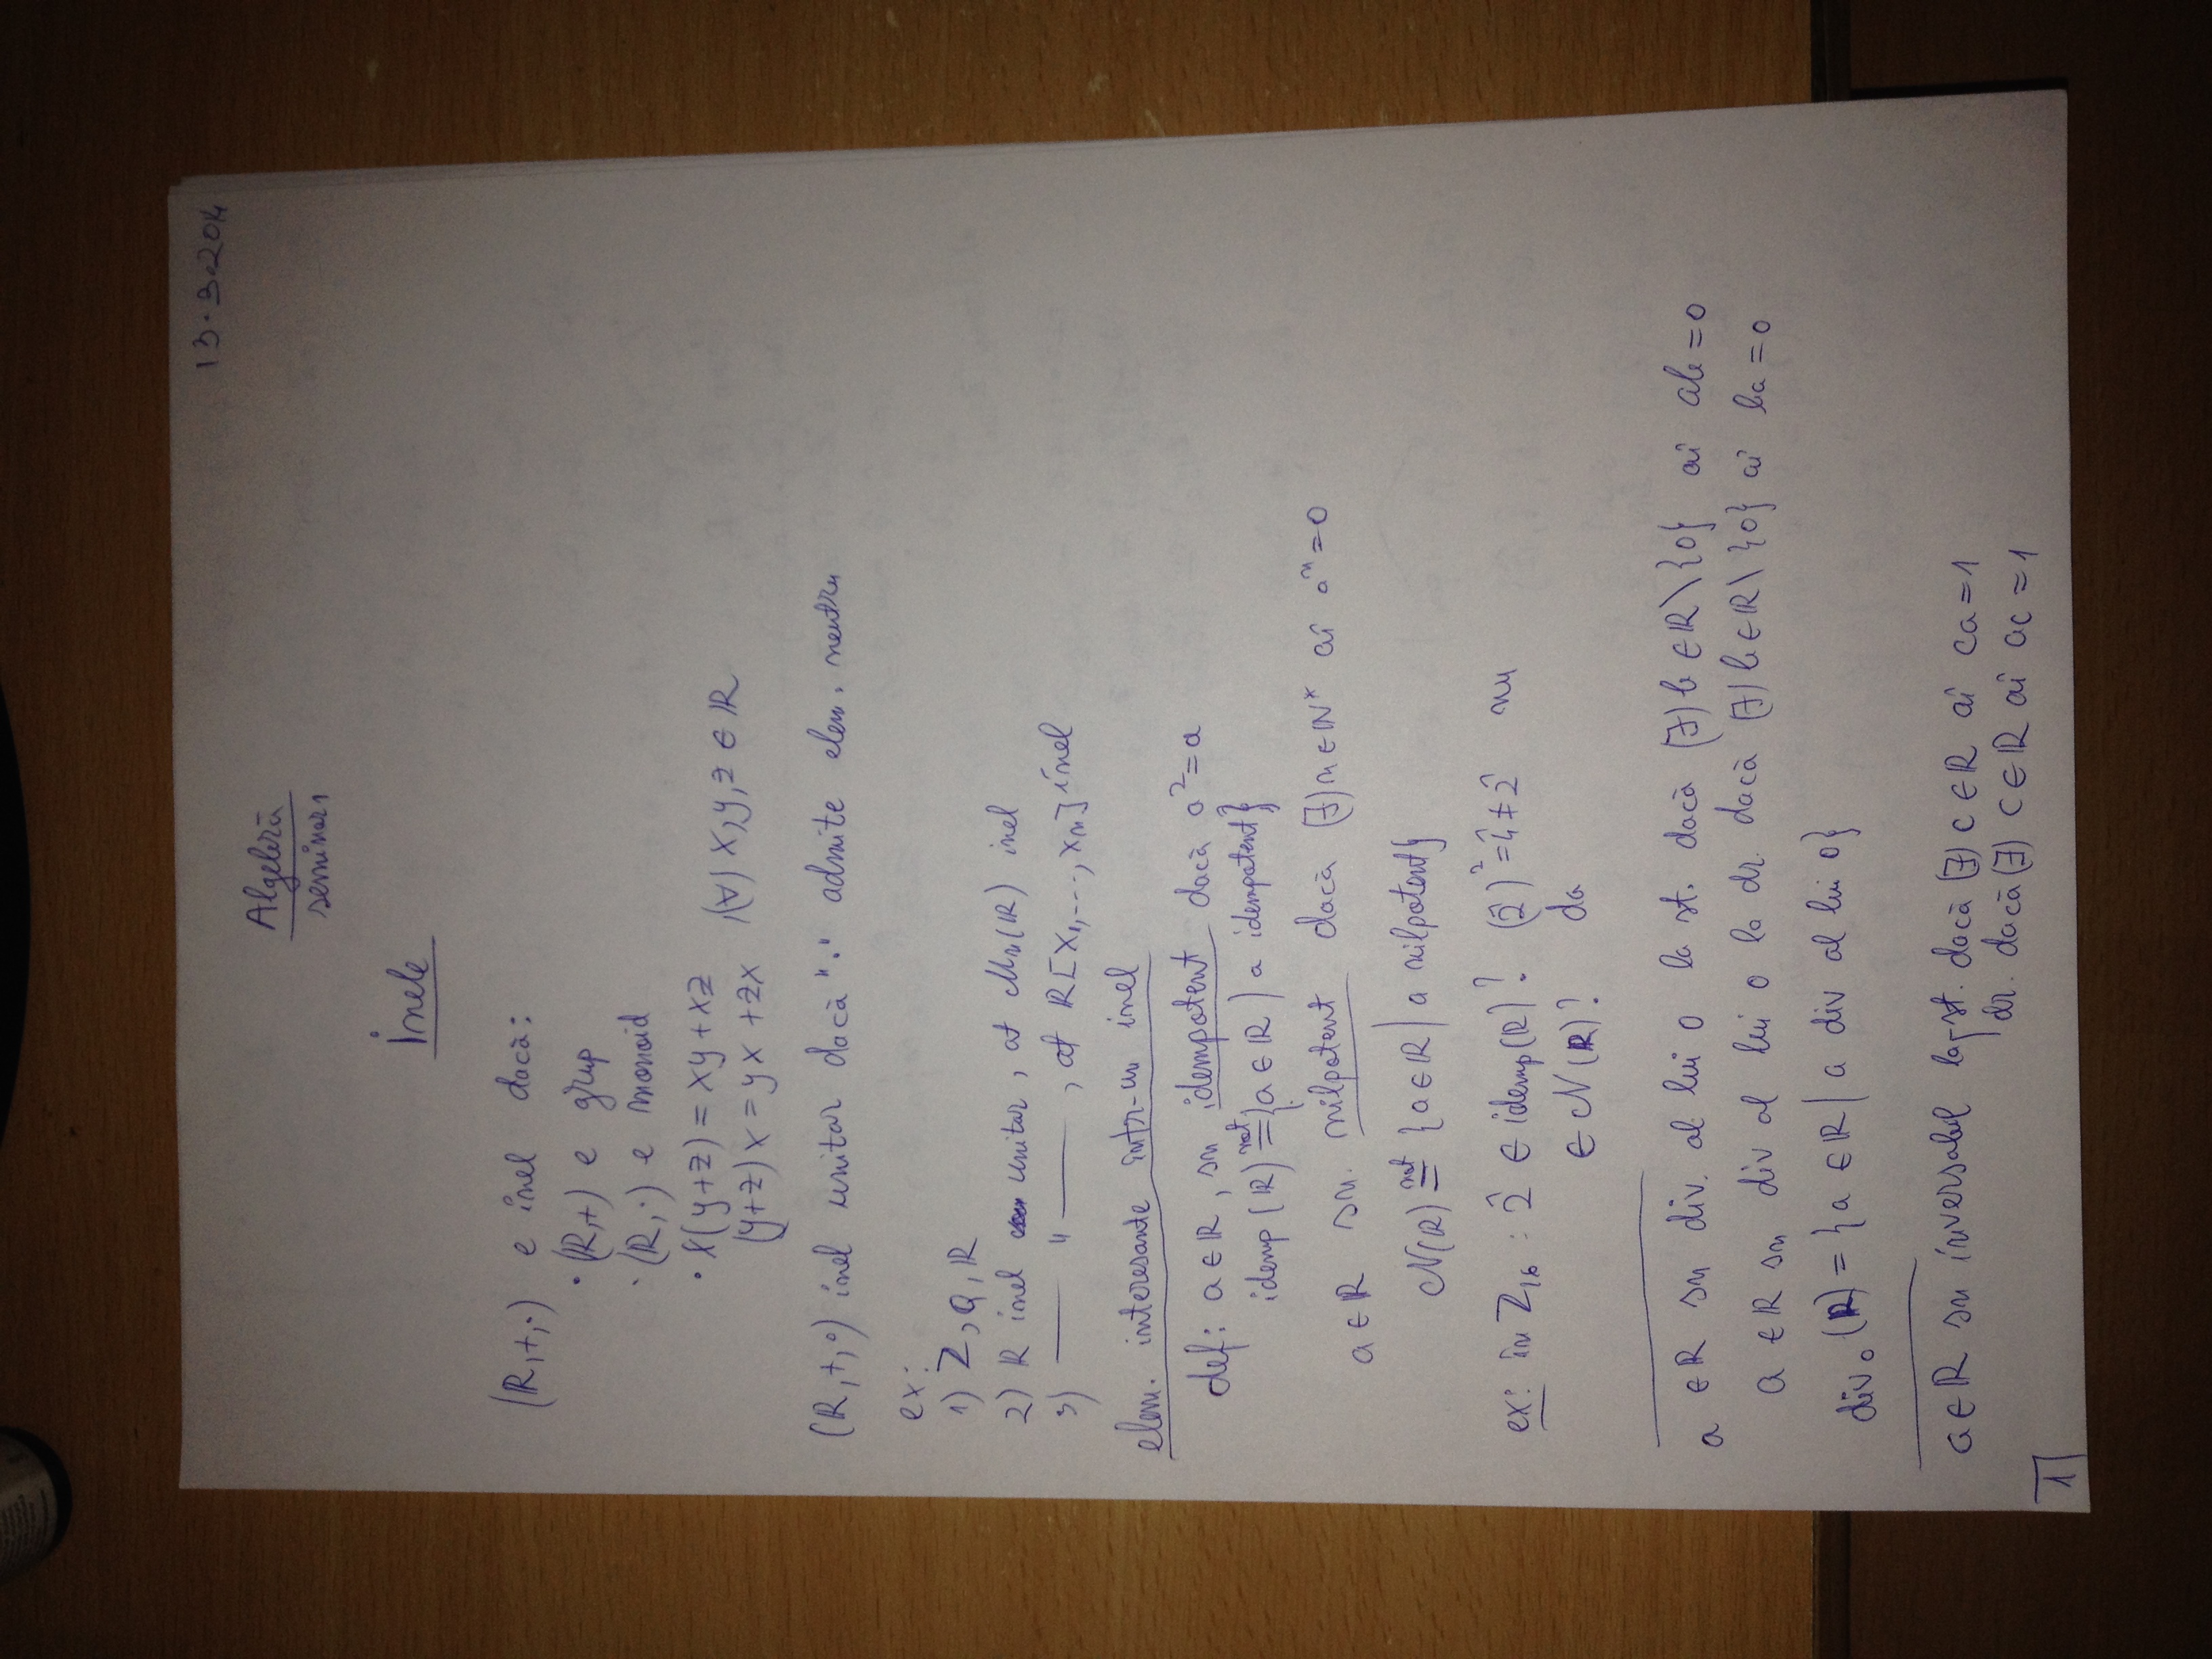 13.3.2014
Algebră
seminar 1
Inele
(R,+,·) e inel dacă:
· (R,+) e grup
· (R,·) e monoid
· x(y+z) = xy + xz
(y+z)x = yx + zx ,(∀) x,y,z ∈ R
(R,+,·) inel unitar dacă "·" admite elem. neutru
ex:
1) Z, Q, R
2) R inel unitar, at Mn(R) inel
3) —— " ——, at R[X1,---,Xn] inel
elem. interesante într-un inel
def: a ∈ R, sn idempotent dacă a²=a
idemp(R) not= {a ∈ R | a idempotent}
a ∈ R sn. nilpotent dacă (∃) n ∈ N* aî aⁿ=0
N(R) not= {a ∈ R | a nilpotent}
ex: în Z16 : 2̂ ∈ idemp(R)? (2̂)²=4̂≠2̂ nu
∈ N(R)? da
a ∈ R sn div. al lui 0 la st. dacă (∃) b ∈ R\{0} aî ab=0
a ∈ R sn div al lui 0 la dr. dacă (∃) b ∈ R\{0} aî ba=0
div0(R) = {a ∈ R | a div al lui 0}
a ∈ R sn inversabil la st. dacă (∃) c ∈ R aî ca=1
dr. dacă (∃) c ∈ R aî ac=1
1